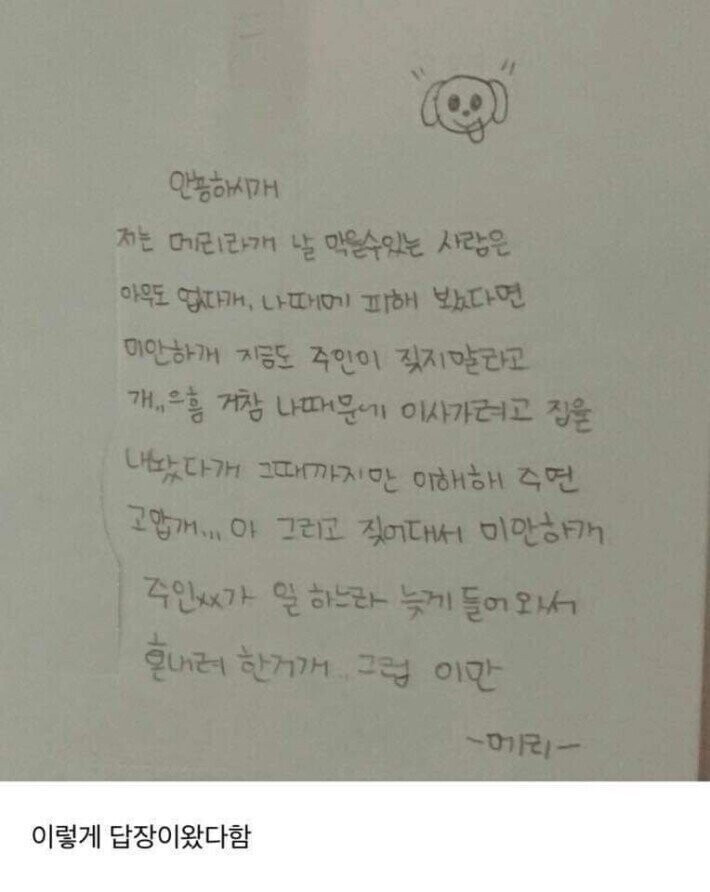 안녕하시개
저는 메리라개 날 막을수있는 사람은
아무도 없다개, 나때메 피해 봤다면
미안하개 지금도 주인이 짖지말라고
개,,으흠 거참 나때문에 이사가려고 집을
내놨다개 그때까지만 이해해 주면
고맙개,,, 아 그리고 짖어대서 미안하개
주인xx가 일 하느라 늦게 들어와서
혼내려 한거개.. 그럼 이만
-메리-
이렇게 답장이왔다함